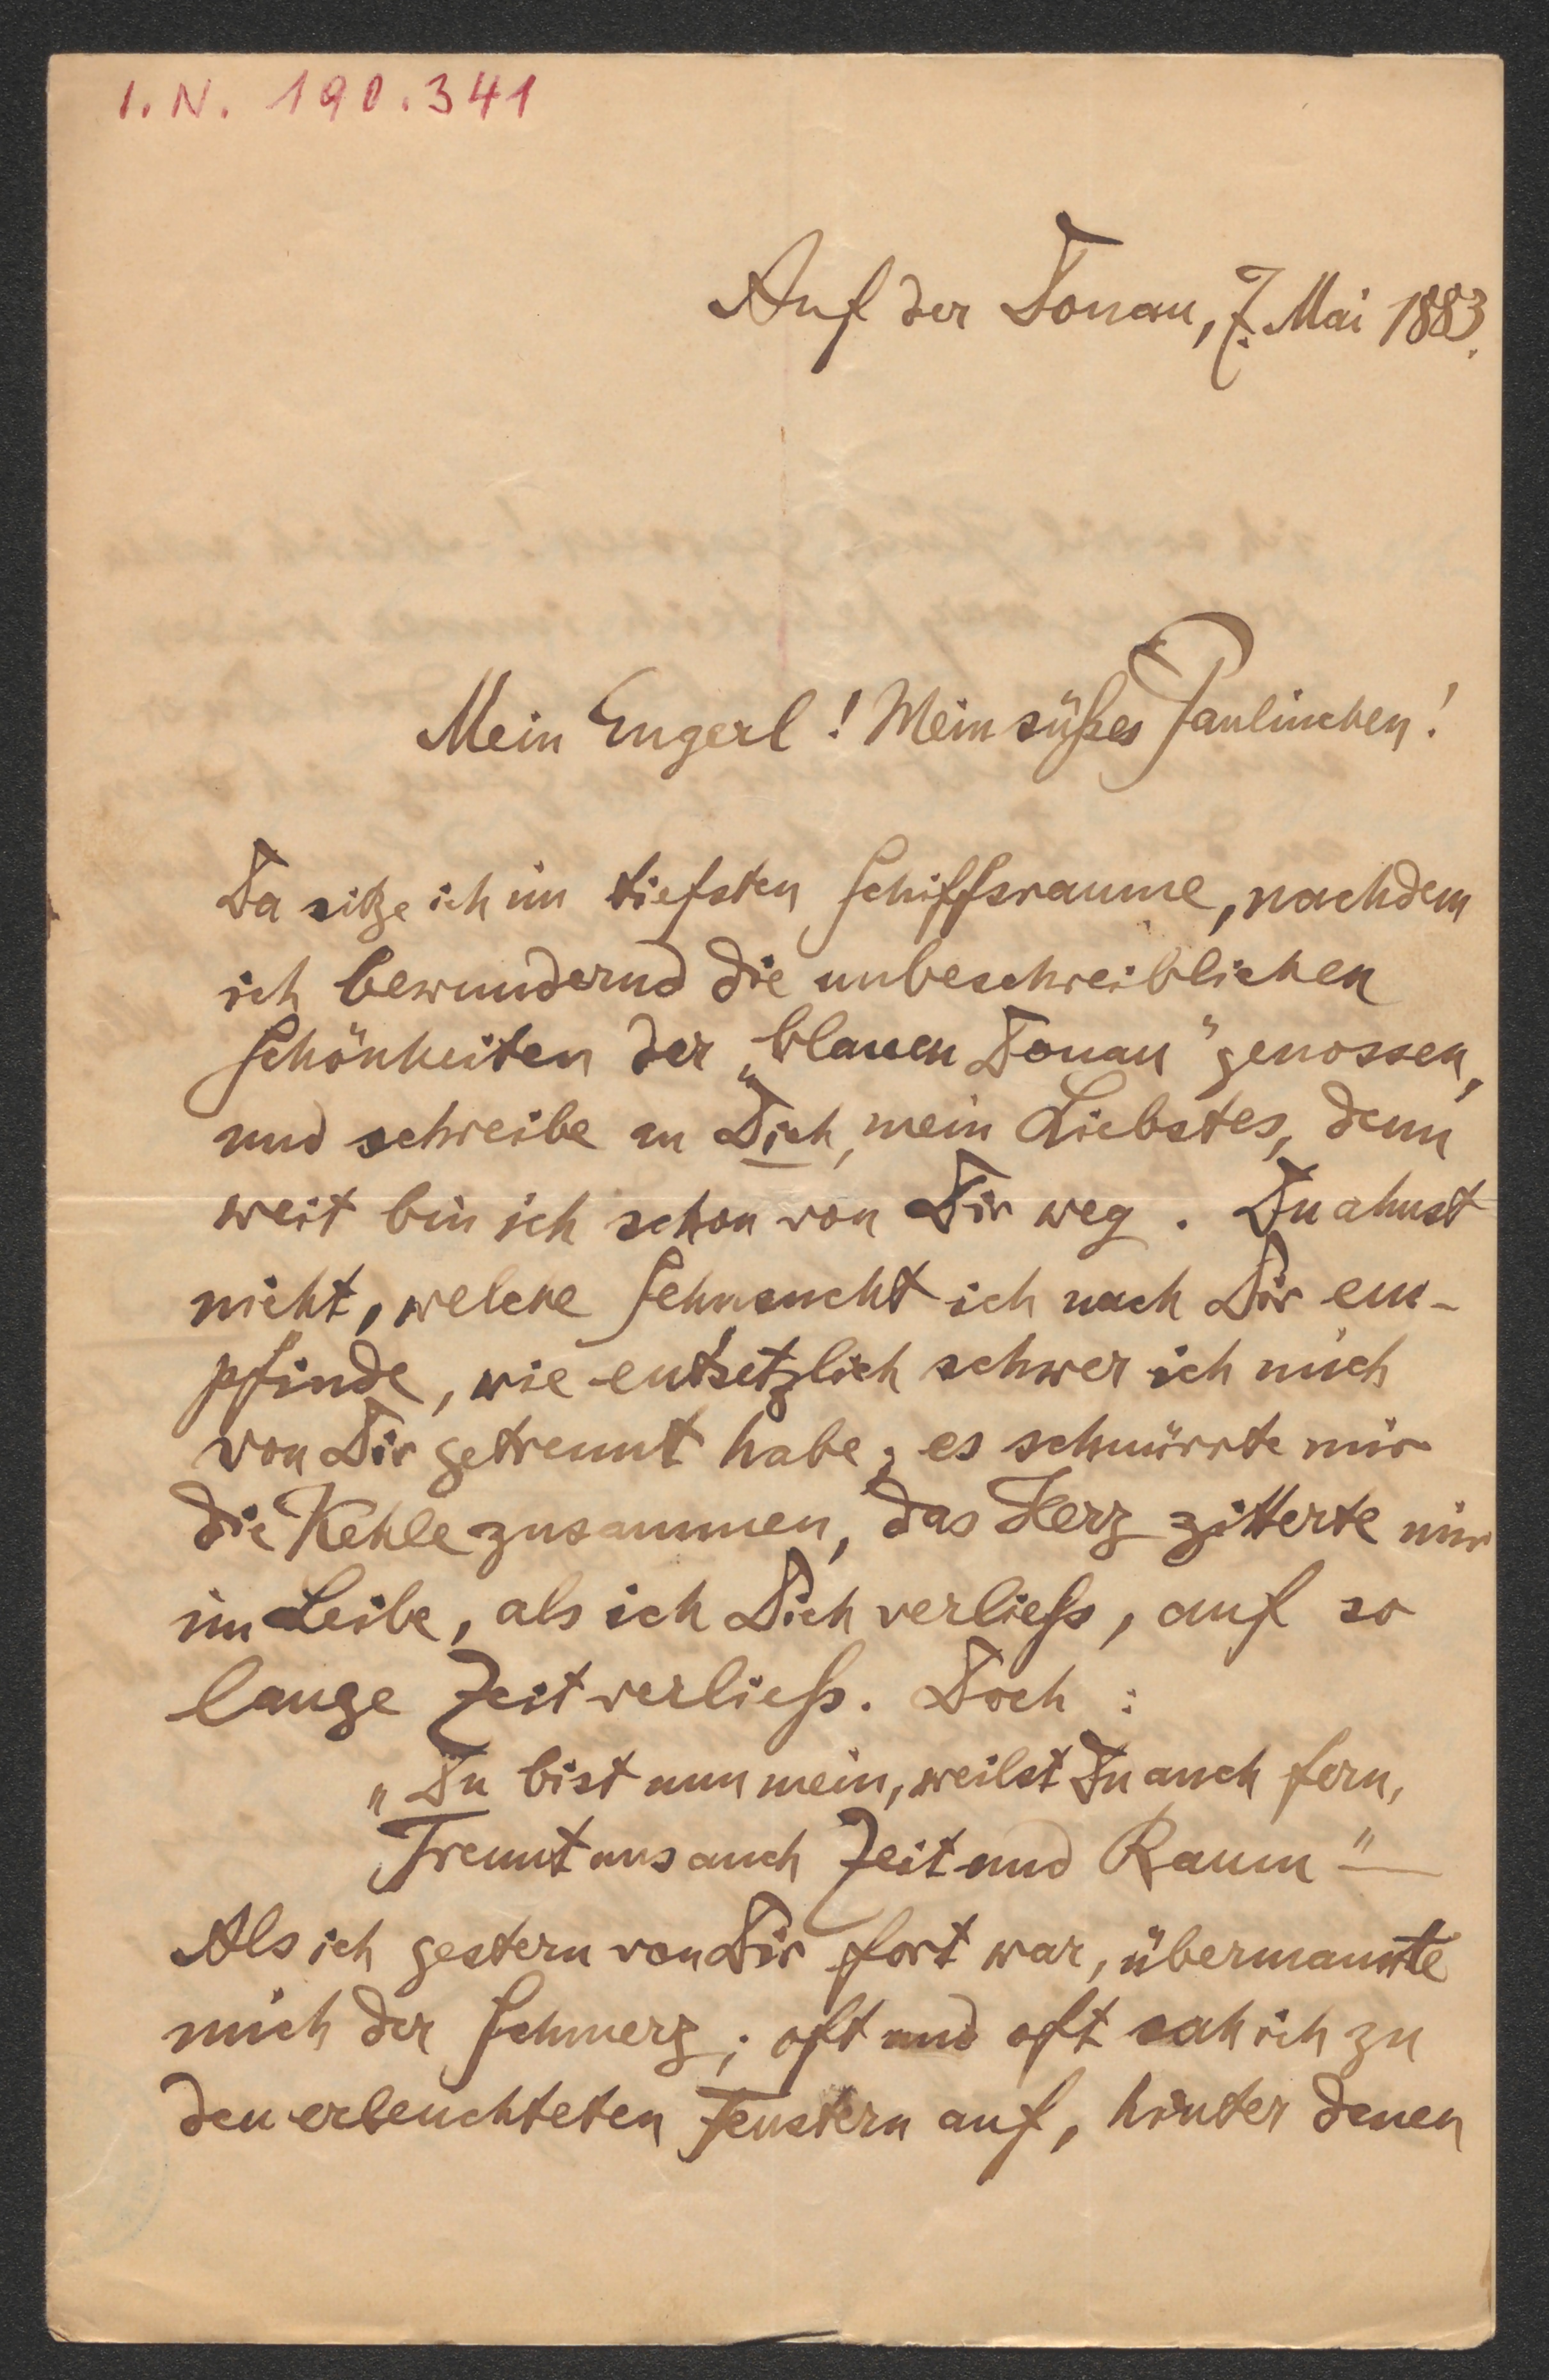 I. N. 190.341
Auf der Donau, 7. Mai 1883.
Mein Engerl! Mein süßes Paulinchen!
Da sitze ich im tiefsten Schiffsraume, nachdem
ich bewundernd die unbeschreiblichen
Schönheiten der „blauen Donau" genossen,
und schreibe an Dich, mein Liebstes, denn
weit bin ich schon von Dir weg. Du ahnst
nicht, welche Sehnsucht ich nach Dir em-
pfinde, wie entsetzlich schwer ich mich
von Dir getrennt habe; es schnürrte mir
die Kehle zusammen, das Herz zitterte mir
im Leibe, als ich Dich verließ, auf so
lange Zeit verließ. Doch:
„Du bist nun mein, weilst Du auch fern,
Trennt uns auch Zeit und Raum" —
Als ich gestern von Dir fort war, übermannte
mich der Schmerz; oft und oft sah ich zu
den erleuchteten Fenstern auf, hinter denen